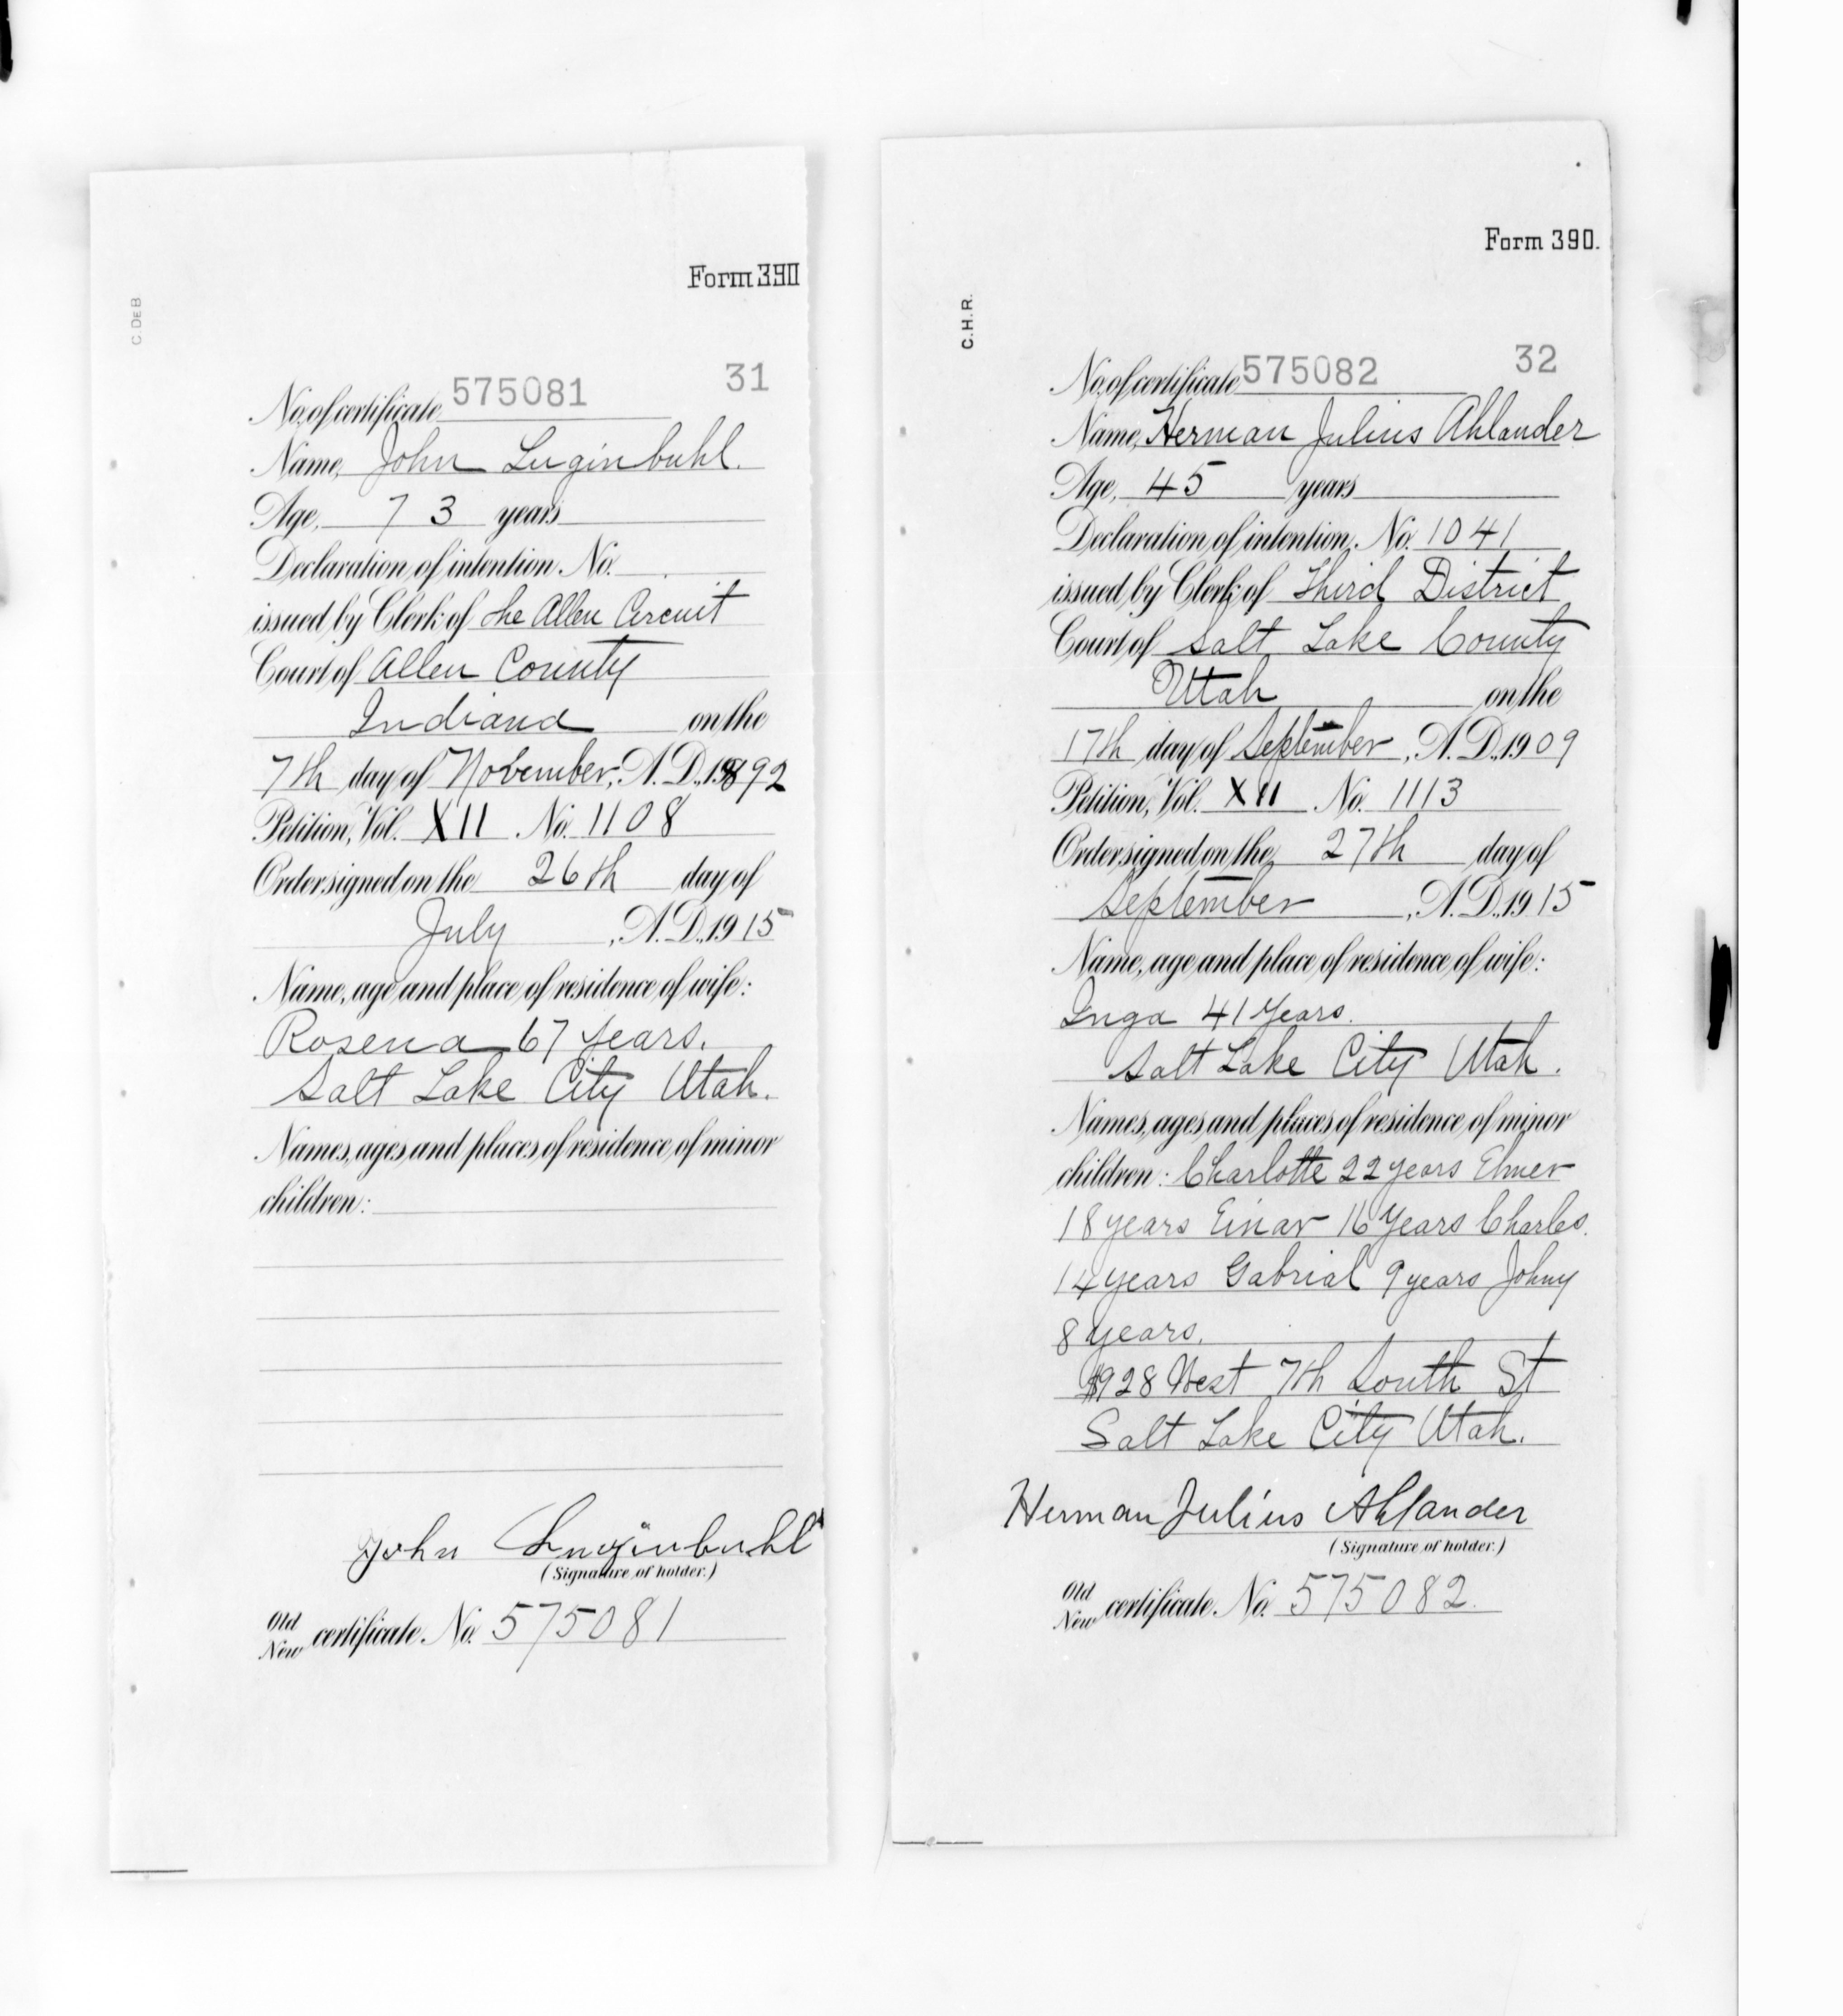 C. DE B
Form 390
31
No. of certificate 575081
Name, John Luginbuhl.
Age, 73 years
Declaration of intention No.
issued by Clerk of the Allen Circuit
Court of Allen County
Indiana on the
7th day of November, A. D., 1892
Petition, Vol. XII No. 1108
Order signed on the 26th day of
July, A. D., 1915
Name, age and place of residence of wife:
Rosena 67 years.
Salt Lake City Utah.
Names, ages and places of residence of minor
children:
John Luginbuhl
(Signature of holder.)
Old
New certificate No. 575081
C. H. R.
Form 390.
32
No. of certificate 575082
Name, Herman Julius Ahlander
Age, 45 years
Declaration of intention, No. 1041
issued by Clerk of Third District
Court of Salt Lake County
Utah on the
17th day of September, A. D., 1909
Petition, Vol. XII No. 1113
Order signed on the 27th day of
September, A. D., 1915
Name, age and place of residence of wife:
Inga 41 Years.
Salt Lake City Utah.
Names, ages and places of residence of minor
children: Charlotte 22 years Elmer
18 years Einar 16 years Charles.
14 years Gabrial 9 years Johny
8 years.
928 West 7th South St
Salt Lake City Utah.
Herman Julius Ahlander
(Signature of holder.)
Old
New certificate No. 575082